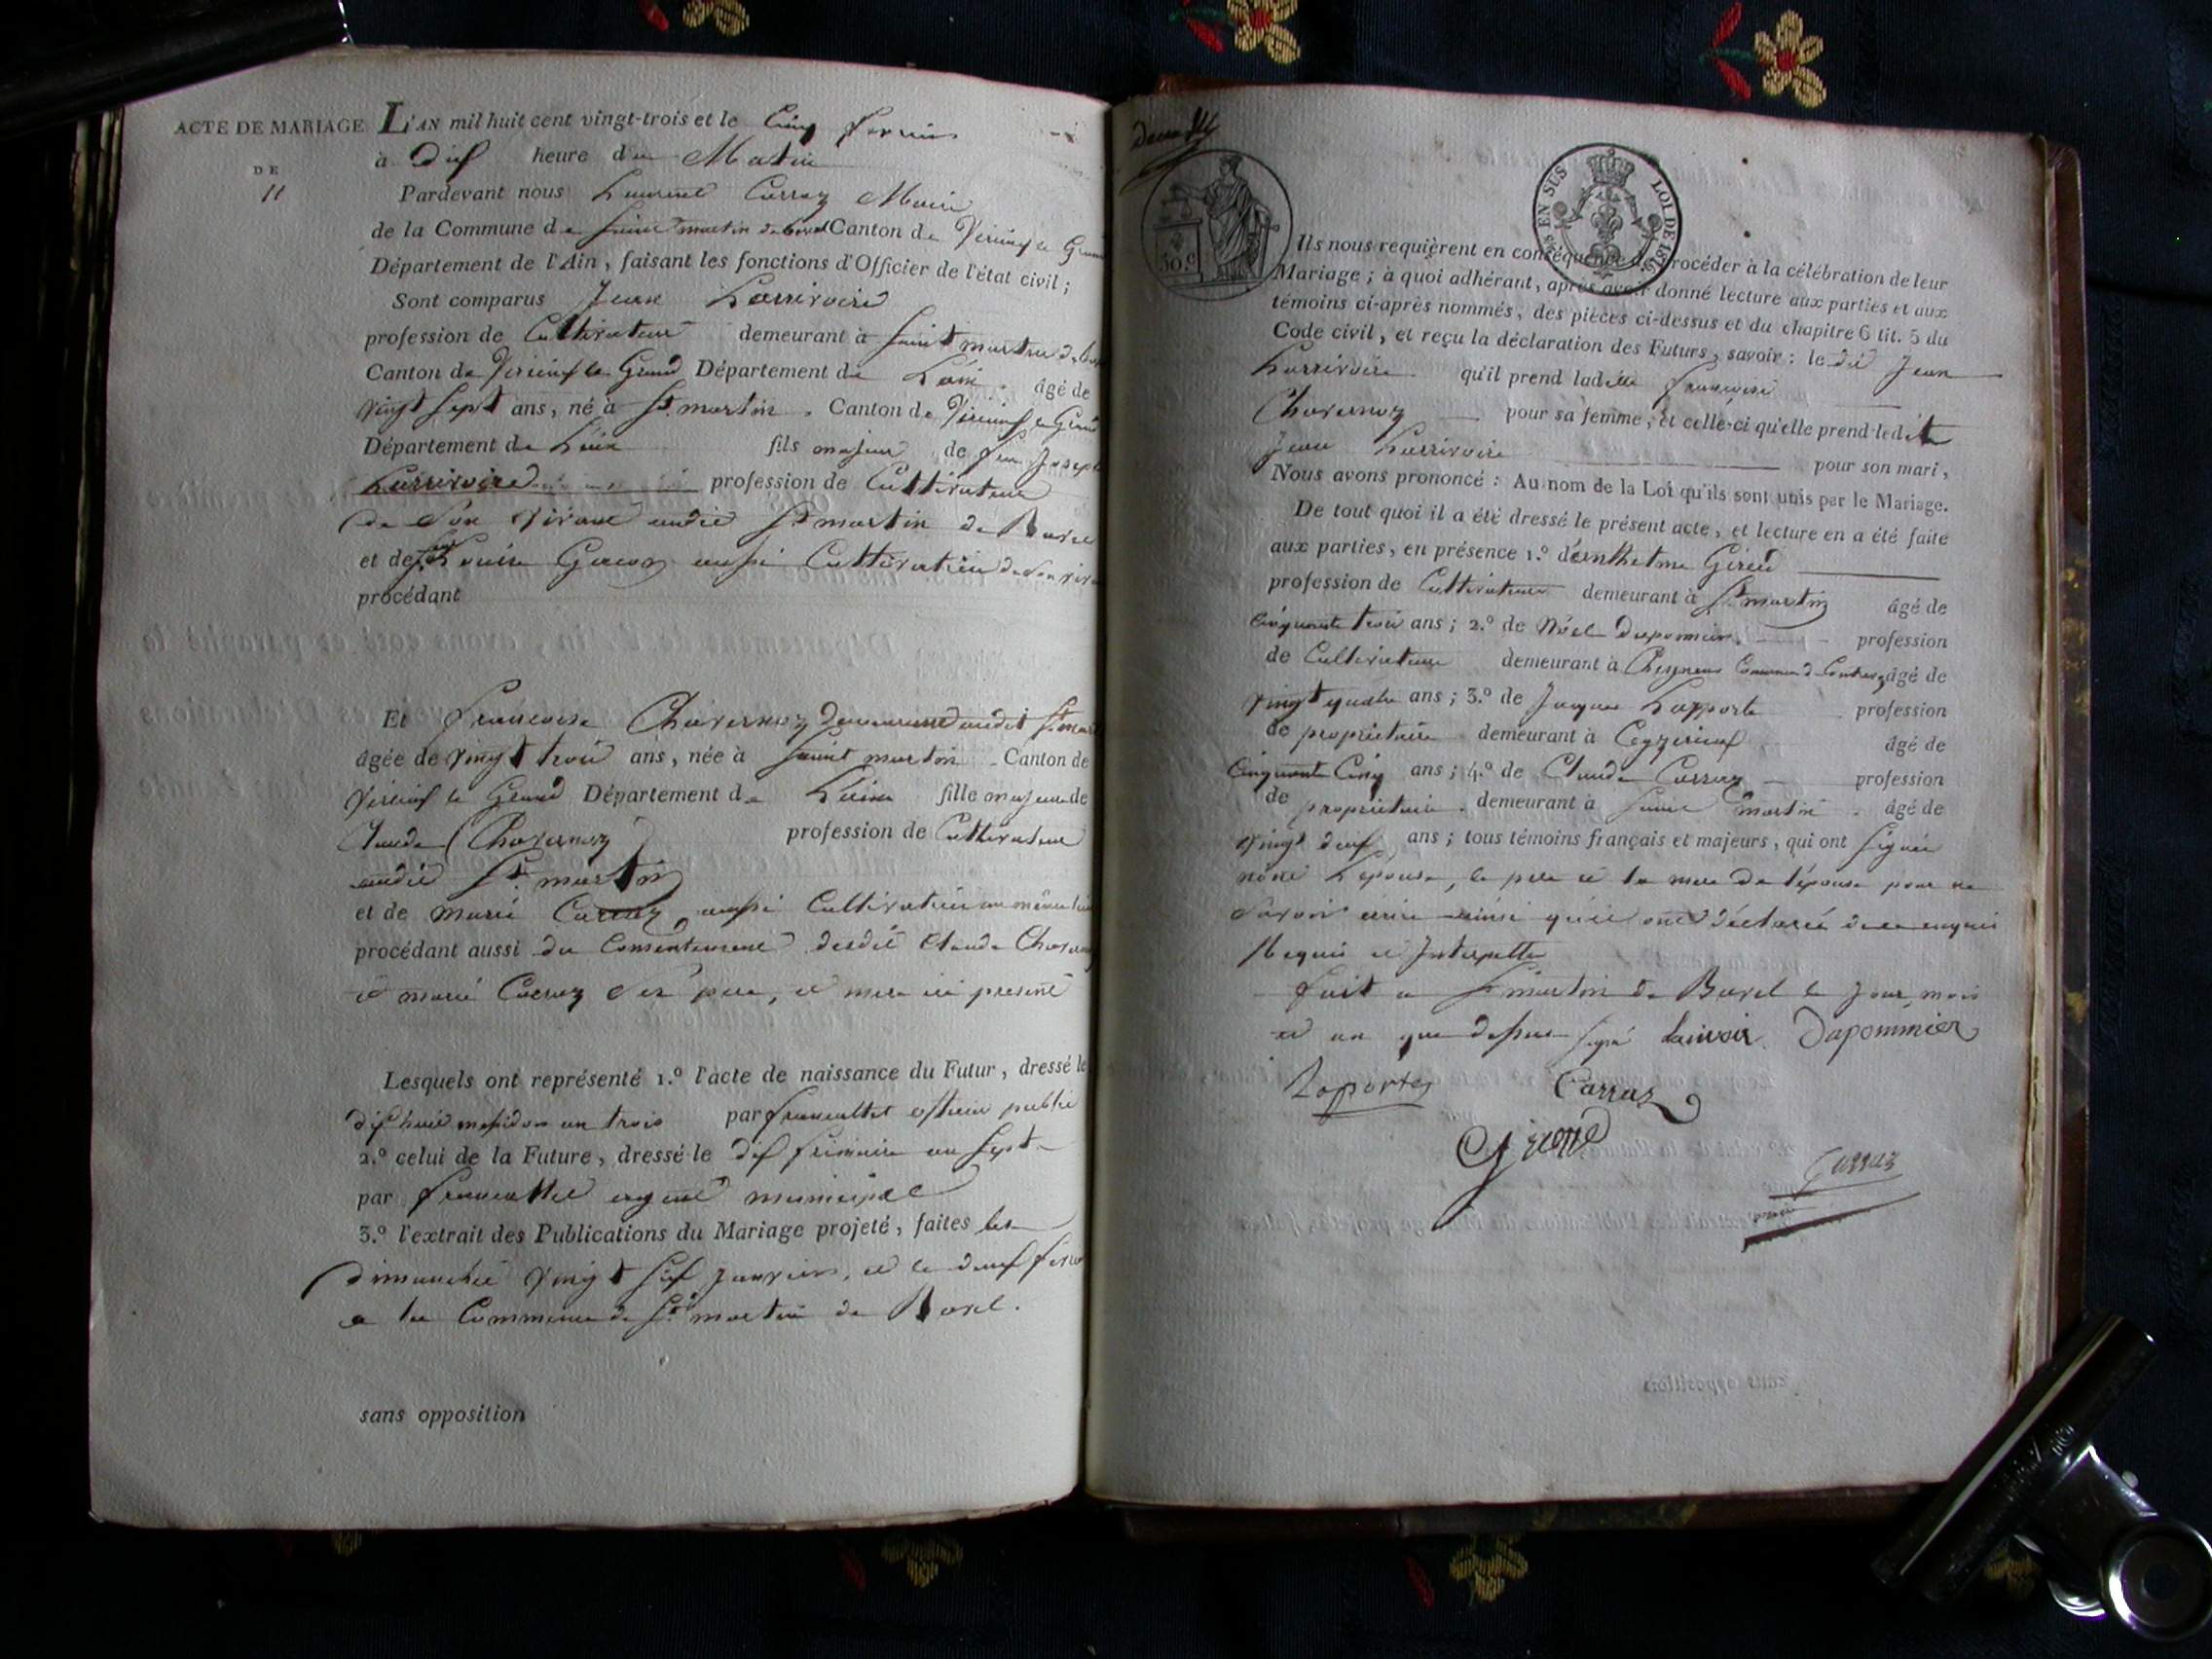 ACTE DE MARIAGE
DE
L'AN mil huit cent vingt-trois et le Cinq fevrier
à Dix heure du Matin
Pardevant nous Laurent Carraz Maire
de la Commune de Saint martin de bavel Canton de Virieux le Grand
Département de l'Ain, faisant les fonctions d'Officier de l'état civil;
Sont comparus Jean Larrivoire
profession de Cultivateur demeurant à Saint martin de
Canton de Virieux le Grand Département de Lain âgé de
vingt sept ans, né à St martin Canton de Virieux le Grand
Département de Lain fils majeur de feu Joseph
Larrivoire profession de Cultivateur
de Son vivant audit St martin de Bavel
et de Louise aussi Cultivatrice de Son
procédant
Et francoise Chavernoz demeurant audit St
âgée de vingt trois ans, née à Saint martin Canton de
Virieux le Grand Département de Lain fille majeure de
Claude Chavernoz profession de Cultivateur
audit St martin
et de marie Carraz aussi Cultivatrice au même lieu
procédant aussi du Consentement desdit Claude
et marie Carraz Ses pere, et mere ici present
Lesquels ont représenté 1.º l'acte de naissance du Futur, dressé le
dix huit messidor an trois par officier public
2.º celui de la Future, dressé le dix frimaire an Sept
par agent municipal
3.º l'extrait des Publications du Mariage projeté, faites les
dimanche vingt Six Janvier, et le deux
a la Commune de St martin de Bavel.
sans opposition
50.C
EN SUS
LOI DE 1816
Ils nous requièrent en conséquence de procéder à la célébration de leur
Mariage; à quoi adhérant, après avoir donné lecture aux parties et aux
témoins ci-après nommés, des pièces ci-dessus et du chapitre 6 tit. 5 du
Code civil, et reçu la déclaration des Futurs, savoir: le dit Jean
Larrivoire qu'il prend ladite francoise
Chavernoz pour sa femme, et celle-ci qu'elle prend ledit
Jean Larrivoire pour son mari,
Nous avons prononcé: Au nom de la Loi qu'ils sont unis par le Mariage.
De tout quoi il a été dressé le présent acte, et lecture en a été faite
aux parties, en présence 1.º d'anthelme
profession de Cultivateur demeurant à St martin âgé de
Cinquante trois ans; 2.º de Noël Dapommier profession
de Cultivateur demeurant à Cheyneux Commune de âgé de
vingt quatre ans; 3.º de Jacques Lapporte profession
de propriétaire demeurant à Ceyzerieux âgé de
Cinquante Cinq ans; 4.º de Claude Carraz profession
de propriétaire demeurant à Saint martin âgé de
vingt deux ans; tous témoins français et majeurs, qui ont Signé
non Lepouse, le pere et la mere de lépouse pour ne
Savoir ecrire ainsi qu'ils ont déclaré de ce enquis
Requis et Interpellé
fait a St martin de Bavel le Jour, mois
et an que dessus Signé Dapommier
Laporte Carraz
Carraz